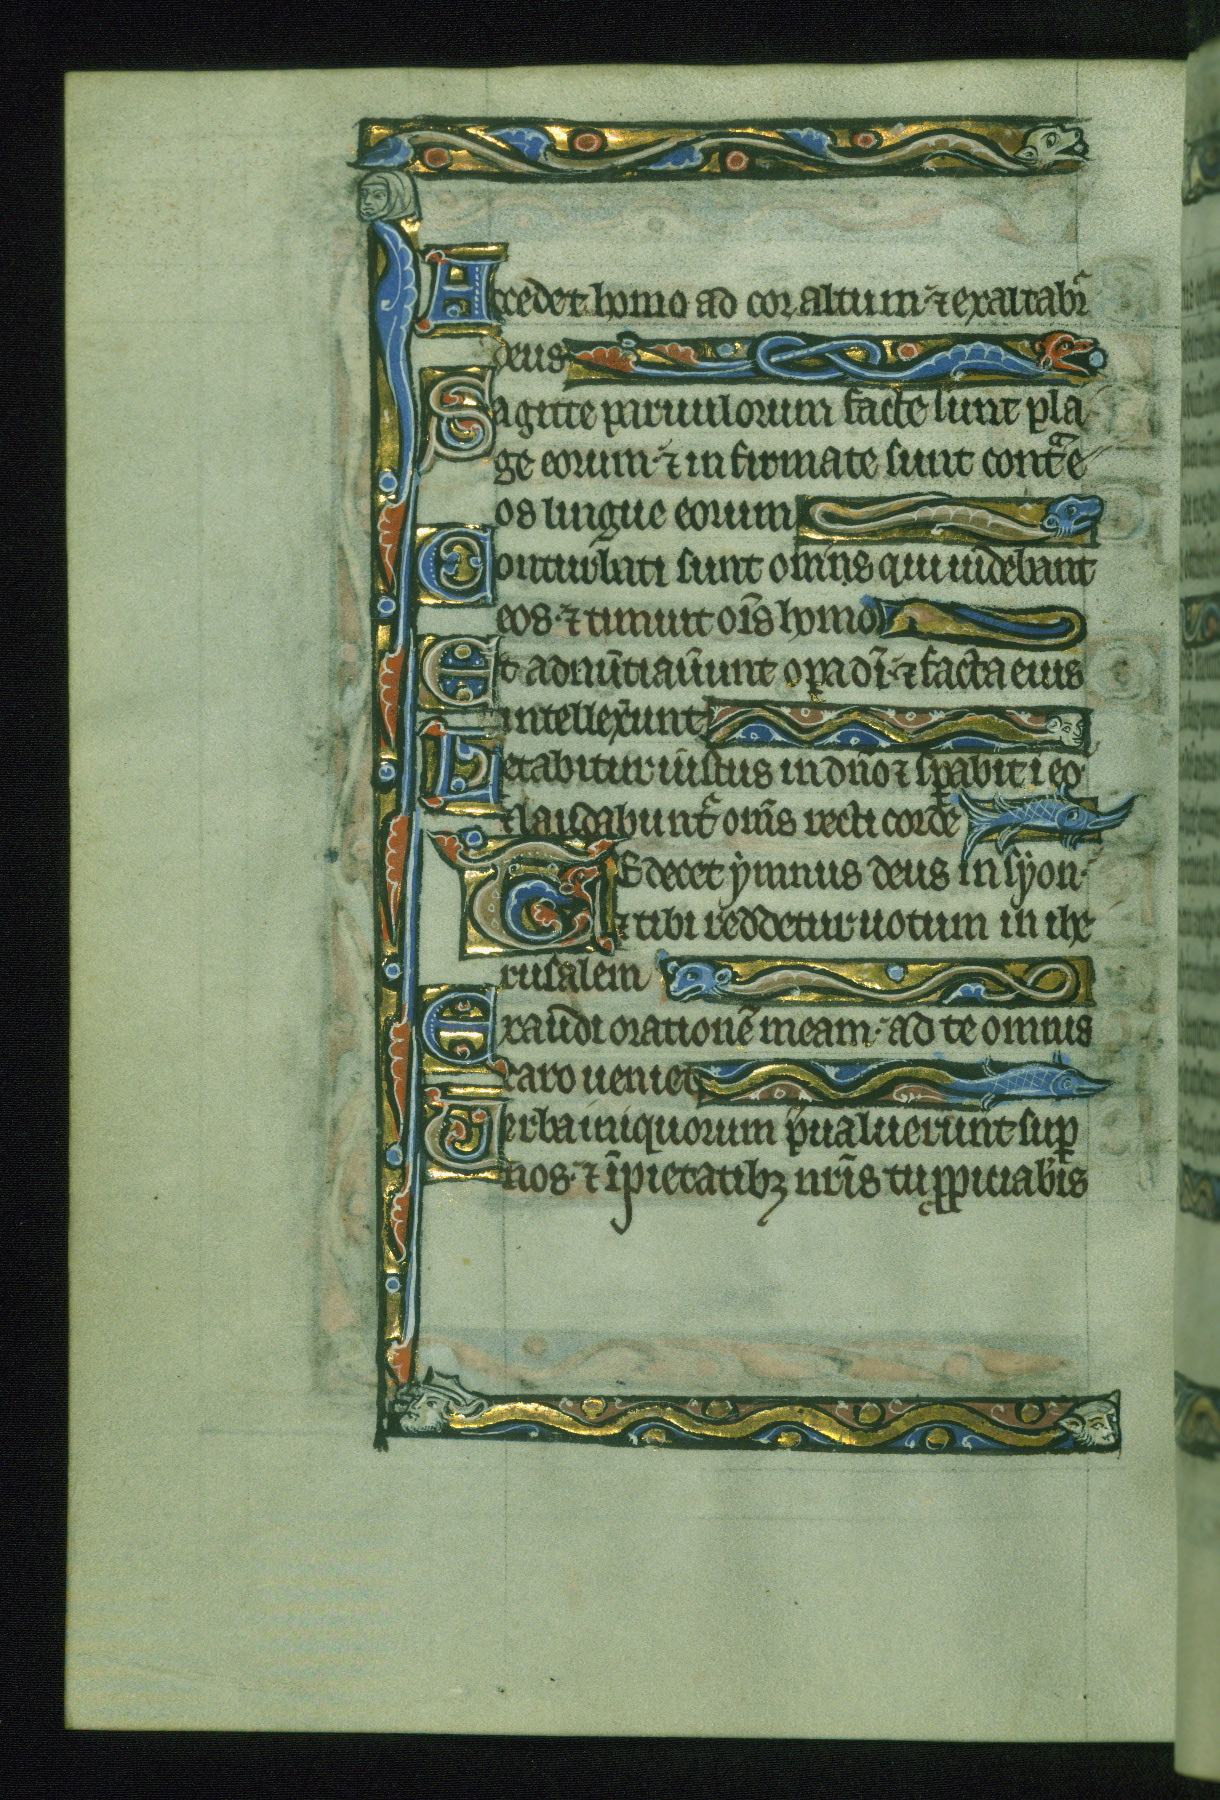 Accedet homo ad cor altum· ⁊ exaltabr̃
deus
Sagitte paruulorum facte sunt pla
ge eorum· ⁊ infirmate sunt contᵃe
os lingue eorum
Conturbati sunt om̄s qui uidebant
eos· ⁊ timuit ois̄ homo
Et adnūtiauer̄unt oꝑa dī· ⁊ facta eius
intellexer̄unt
Letabitur iustus in dn̄o ⁊ sꝑabit ī eo·
⁊ laudabunt̃ om̄s recti corde
TE decet ẏmnus deus in sẏon·
⁊ tibi reddetur uotum in ihe
rusalem
Exaudi orationē meam· ad te omnis
caro ueniet
Uerba iniquorum p̄ualuerunt suꝑ
nos· ⁊ īpietatibꝫ nr̄is tu ꝓpiciab̄is